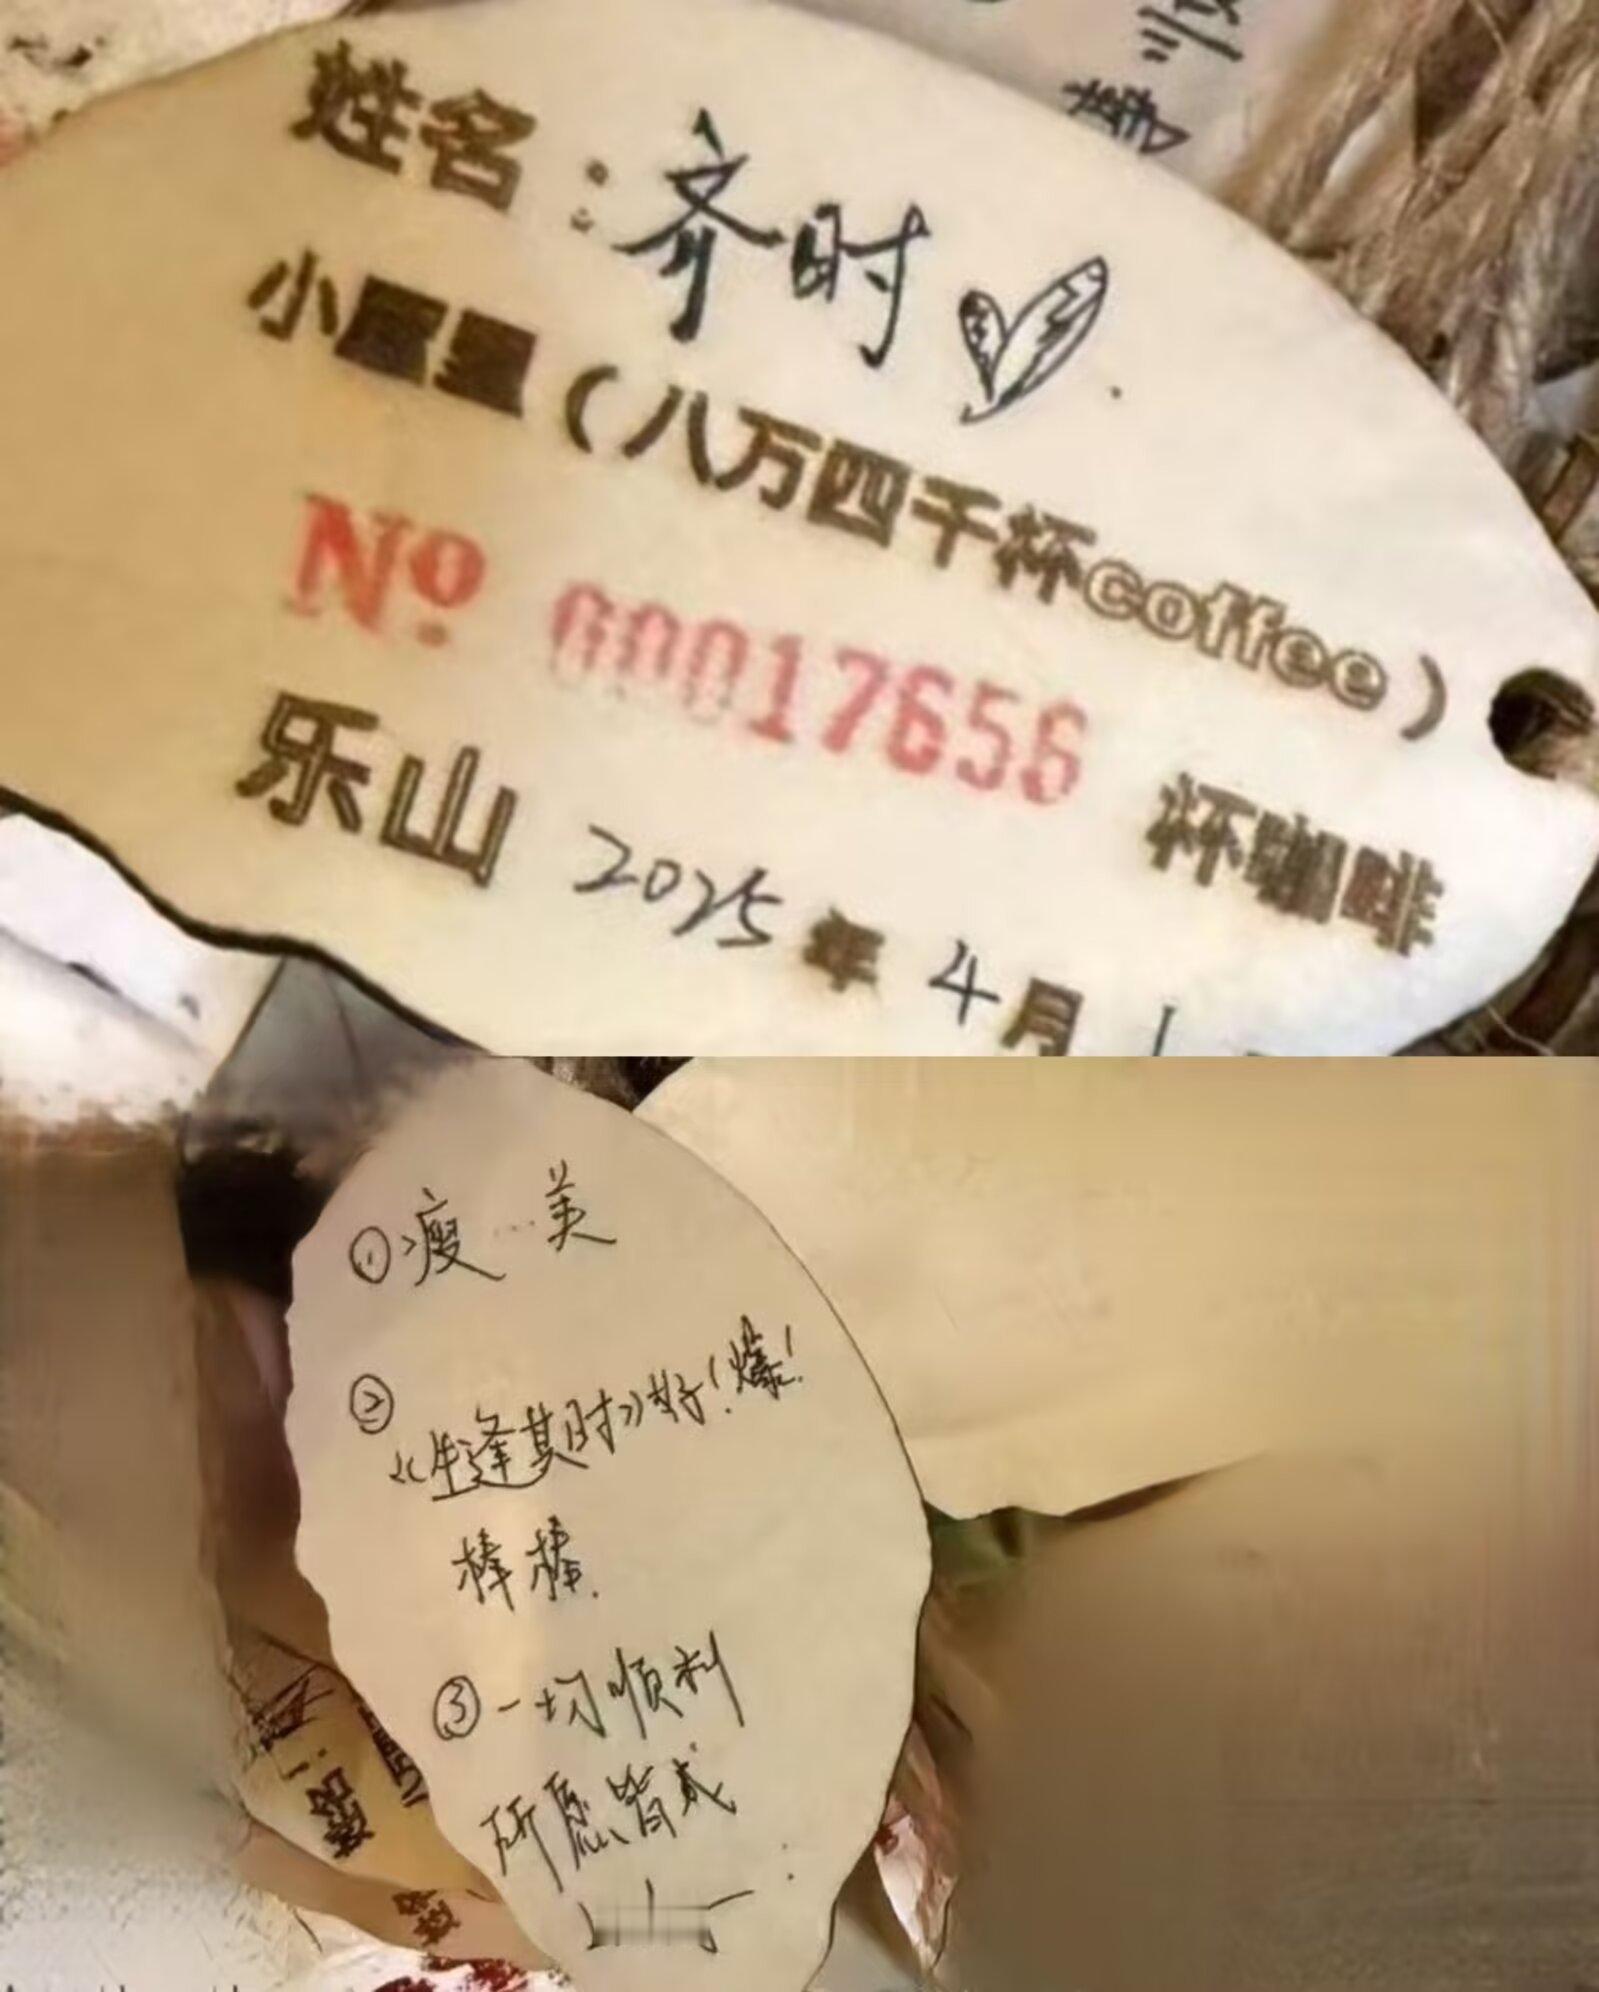 姓名：齐时
小屋里（八万四千杯coffee）
Nº 00017656 杯咖啡
乐山 2025年4月1
①瘦…美
②
《生逢其时》好！爆！
棒棒.
③一切顺利
所愿皆成